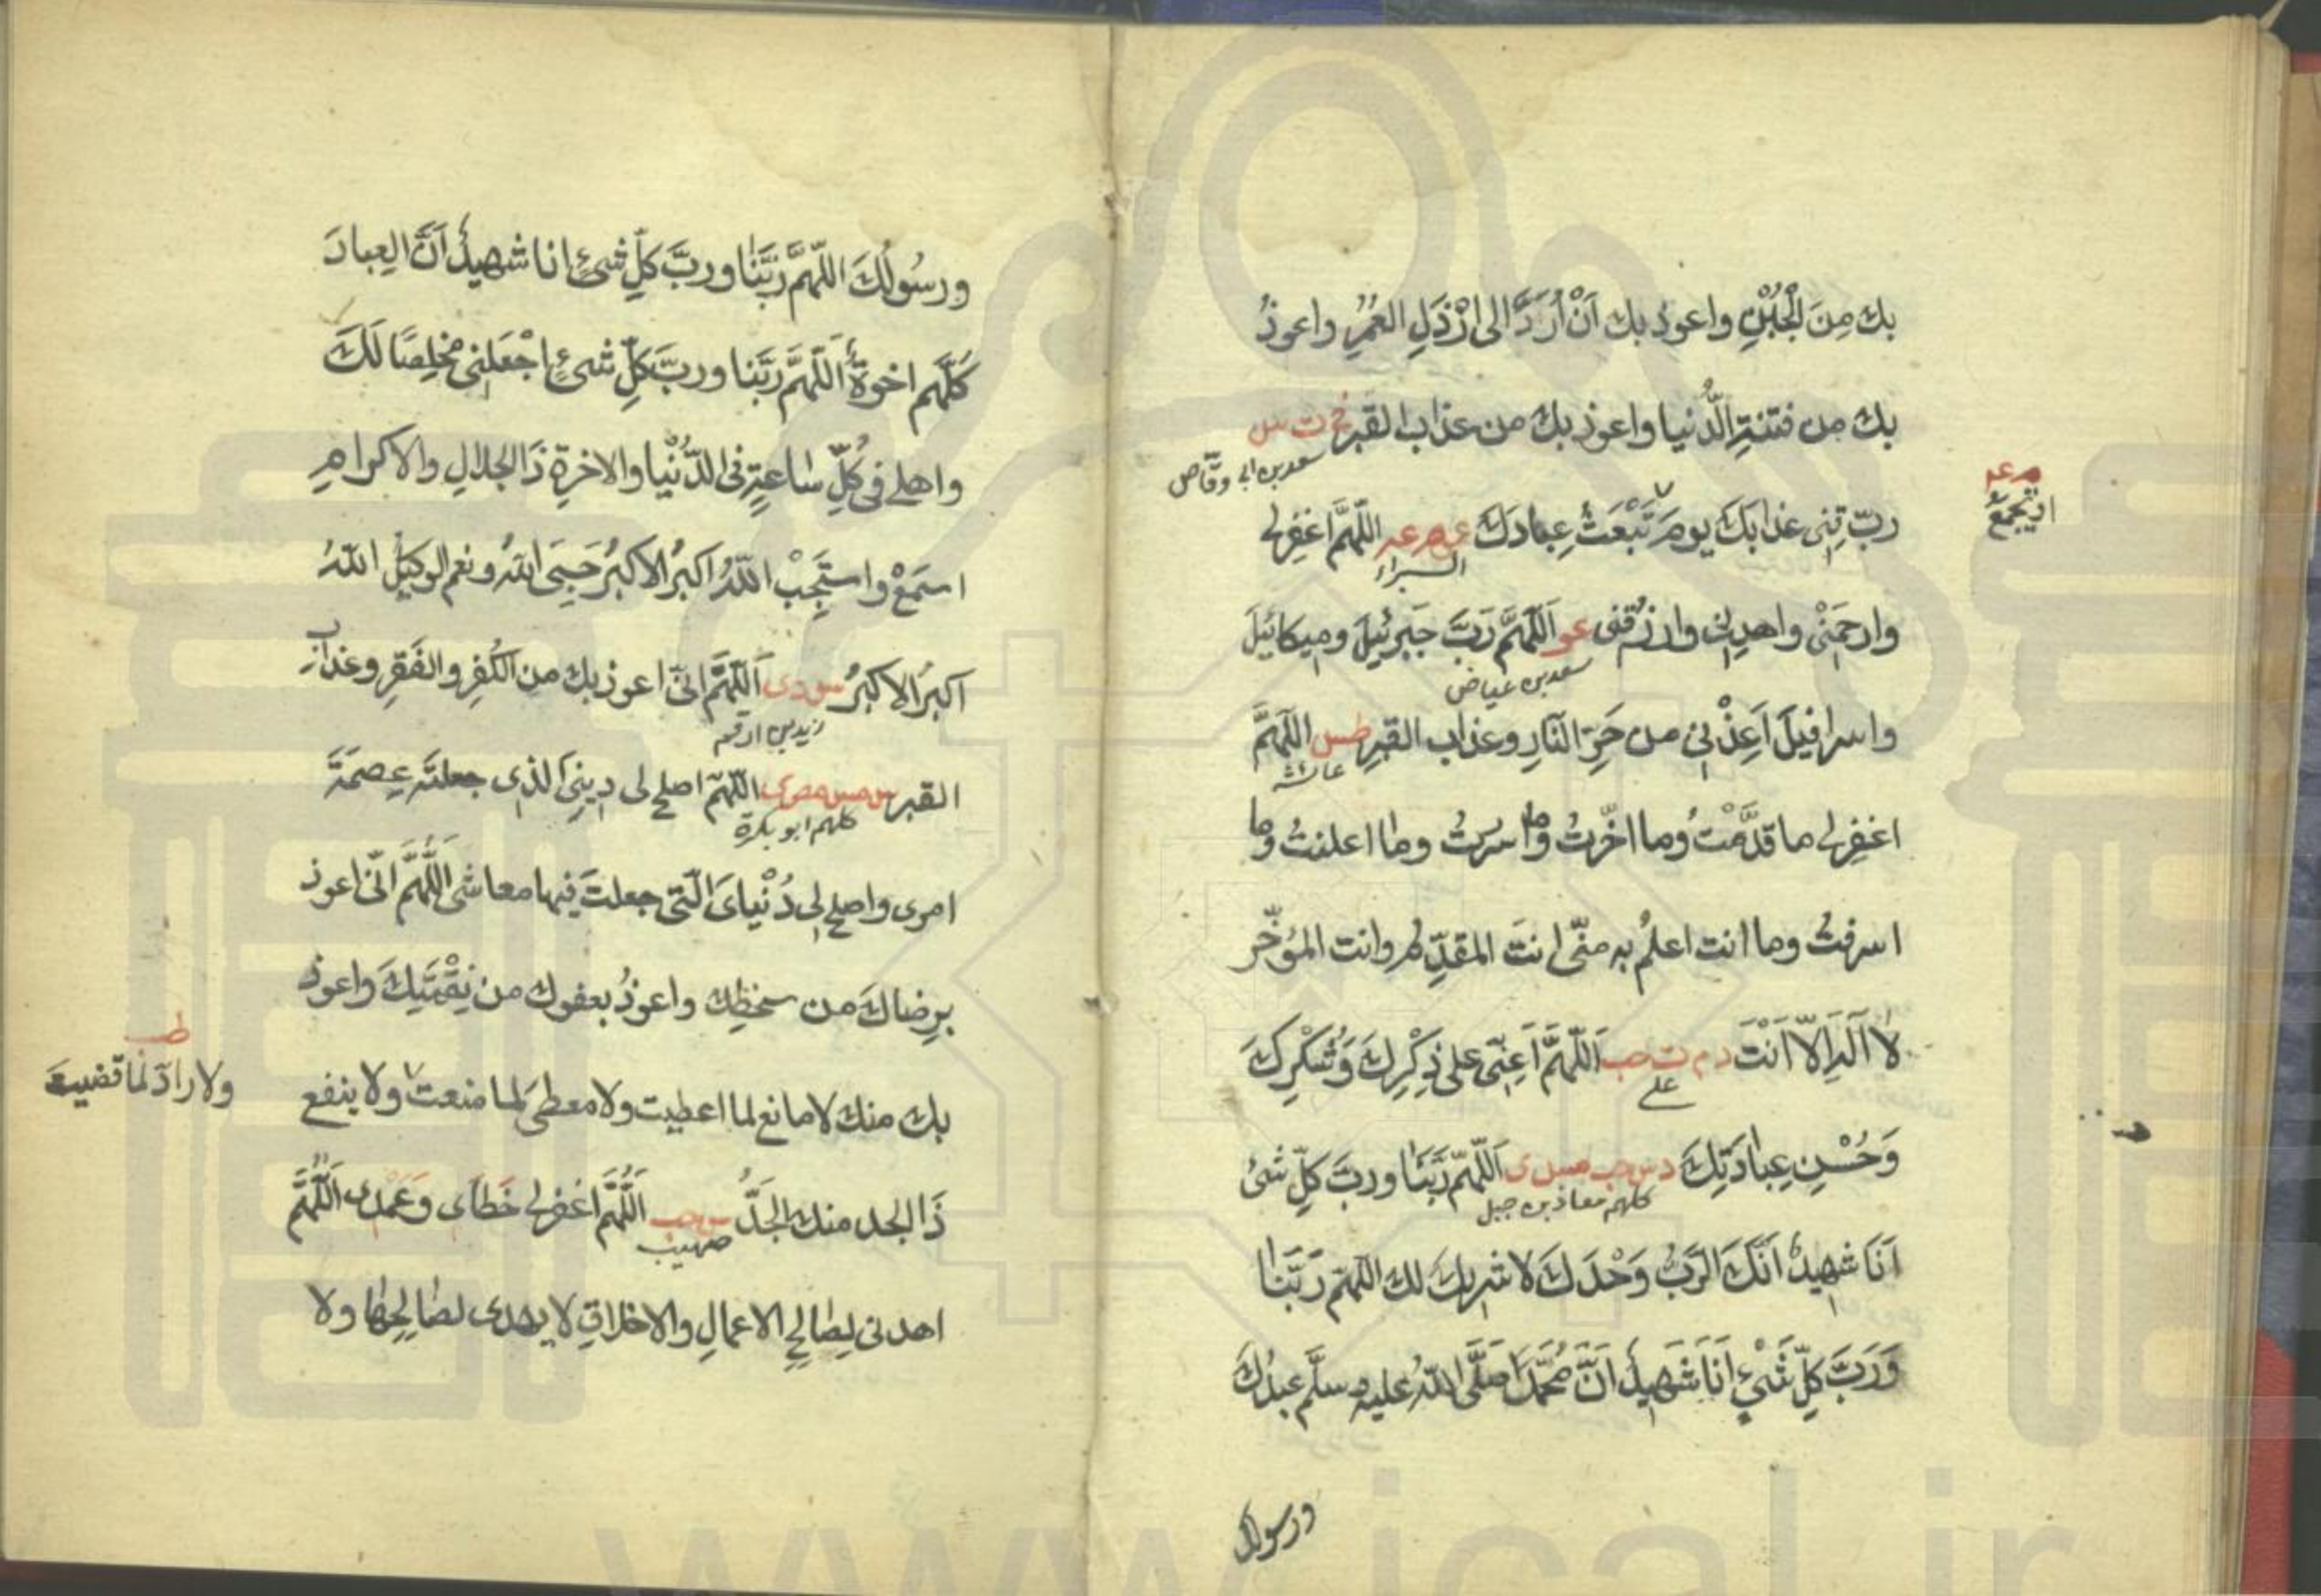 بك مِنَ الْجُبْنِ واعوذ بك اَنْ اُرَدَّ الى اَرْذَلِ العُمُرِ واعوذُ
بك من فتنةِ الدُّنيا واعوذ بك من عذاب القبر خ ت س
سعد بن ابى وقّاص
ربّ قِنِى عذابك يومَ تَبْعَثُ عِبادَكَ عو م عه اللّهمَّ اغفِرلى
م عه
او تجمعُ
البراء
وارحَمَنْى واهدِنِى وارزُقنى عو اَللّهمَّ رَبَّ جَبرئيلَ وميكائيلَ
سعد بن عياض
واسرافيلَ اَعِذْنِى من حَرِّ النّارِ وعذاب القبرِ طس اللّهمَّ
عائشه
اغفِرلى ما قدَّمْتُ وما اخّرتُ وما اسررتُ وما اعلنتُ وما
اسرفتُ وما انت اعلمُ به منّى انتَ المقدِّم وانت المؤخّر
لا اله اِلّا اَنْتَ د م ت حب اَللّهمَّ اَعِنّى على ذِكْرِكَ وَشُكْرِكَ
على
وَحُسْنِ عِبادَتِكَ د س حب مس ى اَللّهمّ رَبَّنا وربَّ كلِّ شئ
كلهم معاذ بن جبل
اَنَا شهِيدٌ اَنَّكَ الرَّبُّ وَحْدَكَ لا شريك لك اللّهمّ رَبَّنا
وَرَبَّ كلِّ شَىْءٍ اَنَا شَهِيدٌ اَنَّ مُحَمَّدًا صَلَّى اللّهُ عليه وسلَّم عبدُكَ
ورسولك
ورسُولُكَ اللّهمَّ رَبَّنا وربَّ كلِّ شئٍ انا شهيدٌ اَنَّ العِبادَ
كلَّهم اخوةٌ اَللّهمَّ ربَّنا وربَّ كلِّ شئٍ اجْعَلنى مخلِصًا لَكَ
واهلى فى كُلِّ ساعةٍ فى الدُّنْيا والاخرةِ ذَا الجلالِ والاكرامِ
استمعْ واستَجِبْ اللّهُ اكبرُ الاكبرُ حَسبِىَ اللّهُ ونعم الوكيلُ اللّهُ
اكبرُ الاكبرُ س د ى اَللّهمَّ انّى اعوذ بك من الكُفرِ والفَقرِ وعذابِ
زيد بن ارقم
القبرِ س مس مص ى اللّهمّ اصلح لى دِينِىَ الذى جعلتَه عِصمَةَ
كلهم ابو بكرة
امرى واصلح لى دُنْياىَ الّتى جعلتَ فيها معاشى اللّهمَّ انّى اعوذ
بِرِضاكَ من سخطِك واعوذُ بعفوك من نِقْمَتِكَ واعوذ
بك منك لا مانع لما اعطيت ولا معطىَ لما منعت ولا ينفع
طب
ولا رادّ لما قضيت
ذَا الجد منك الجَدُّ س حب اَللّهمَّ اغفرلى خَطاى وَعَمْدى اللّهمَّ
صهيب
اهدنى لِصالحِ الاعمالِ والاخلاقِ لا يهدى لصالِحِها ولا
www.ical.ir